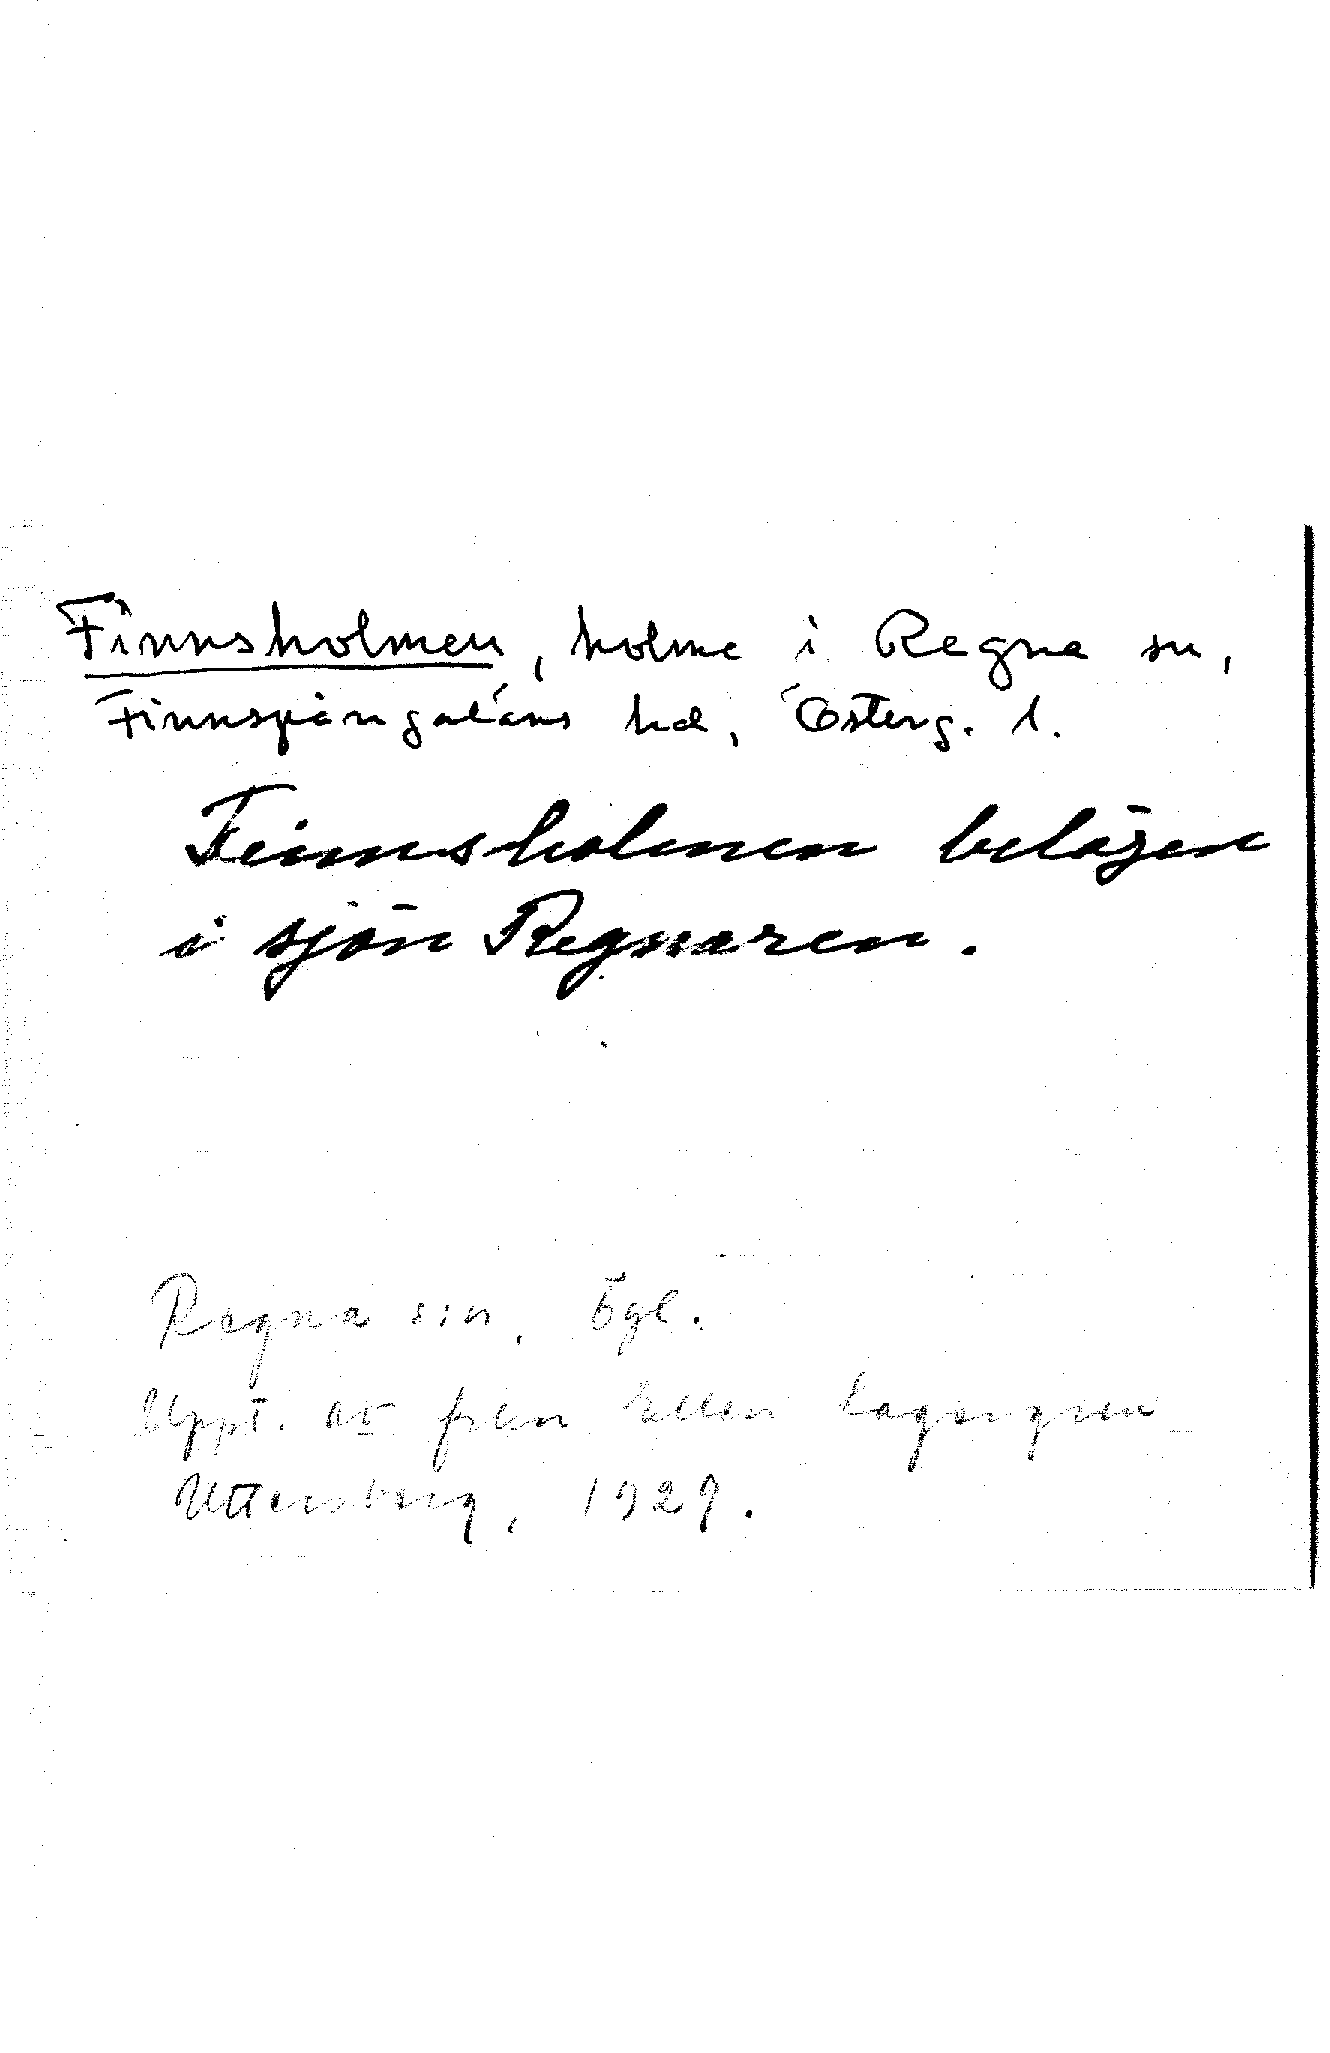 Finnsholmen, holme i Regna sn,
Finnspångaläns hd, Österg. l.
Finnsholmen belägen
i sjön Regnaren.
Regna s:n, Ögl.
Uppt. av frkn Ellen Lagergren
Uttersberg, 1929.